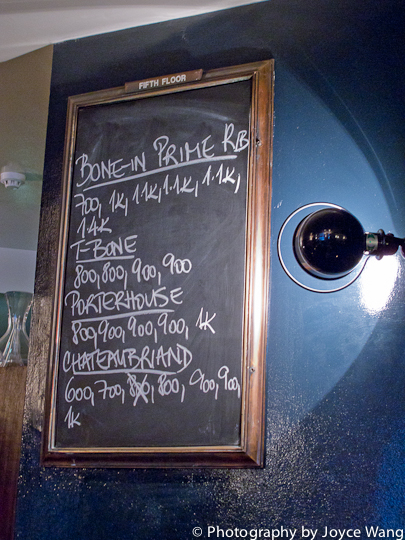 FIFTH FLOOR
BONE-IN PRIME RIB
700, 1K, 1.1K, 1.1K, 1.1K,
1.4K
T-BONE
800, 800, 900, 900
PORTERHOUSE
800, 900, 900, 900, 1K
CHATEAUBRIAND
600, 700, 800, 800, 900, 900,
1K
© Photography by Joyce Wang